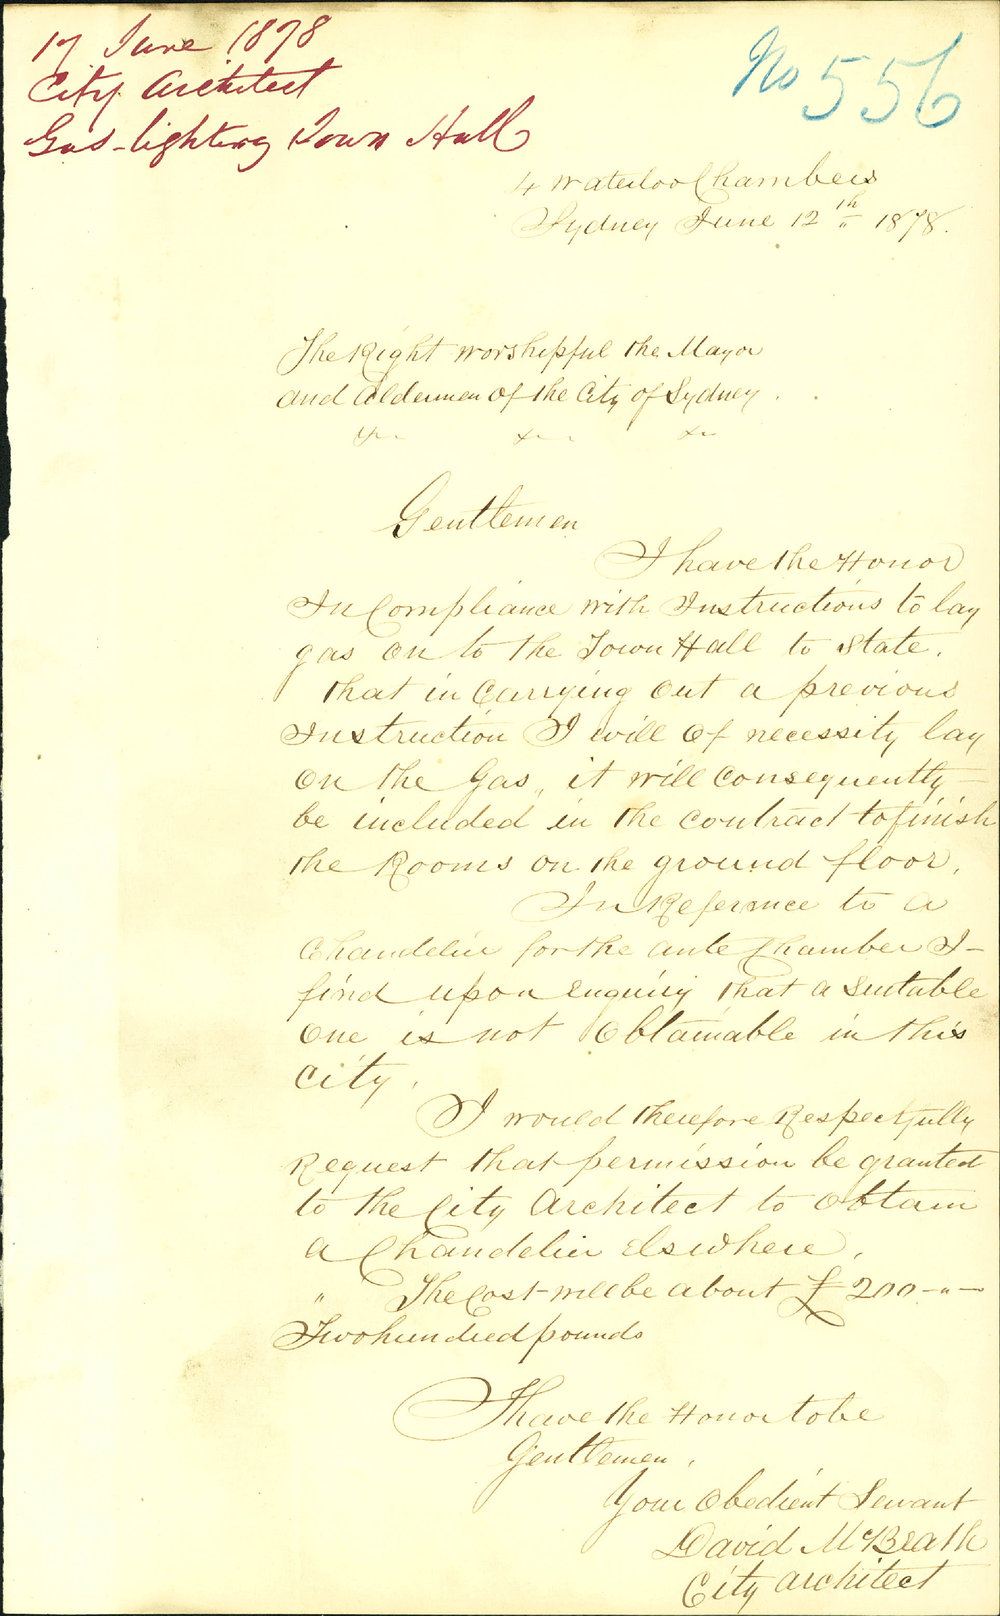 17 June 1878
City Architect
Gas-lighting Town Hall
No 556
4 Waterloo Chambers
Sydney June 12th 1878.
The Right Worshipful the Mayor
and Aldermen of the City of Sydney.
Gentlemen
I have the Honor
In Compliance with Instructions to lay
gas on to the Town Hall to State.
that in Carrying out a previous
Instruction I will of necessity lay
on the Gas, it will Consequently
be included in the Contract to finish
the Rooms on the ground floor.
In Reference to a
Chandelier for the ante Chamber I
find upon Enquiry that a Suitable
One is not Obtainable in this
City.
I would therefore Respectfully
Request that permission be granted
to the City Architect to Obtain
a Chandelier Elswhere.
" The Cost will be about £200-"-
Two hundred pounds
I have the Honor to be
Gentlemen.
Your Obedient Servant
David McBeath
City Architect